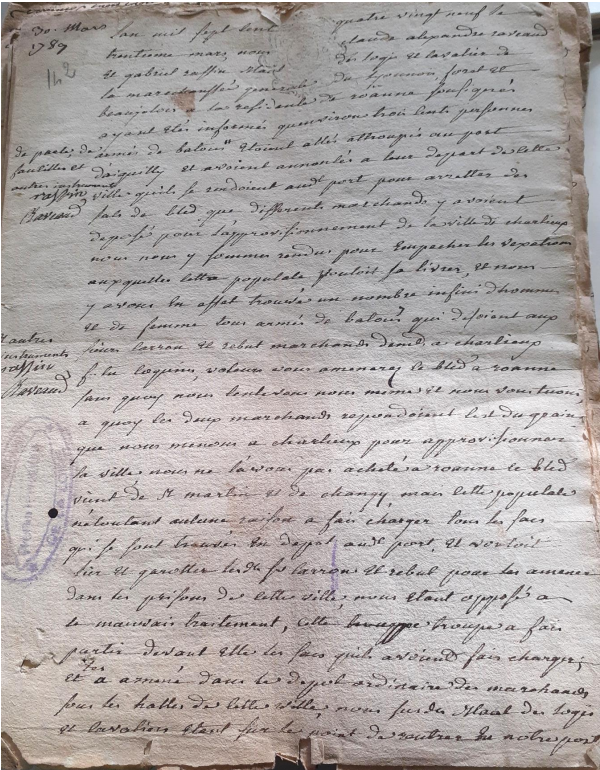 30. Mars
1789
142
Lan mil sept cent quatre vingt neuf le
trentieme mars, nous Claude alexandre raveaud
et gabriel raffin Maal de logis et Cavalier de
la marechaussée generale du Lyonnois, foret et
beaujolois a la residence de roanne soussignés
ayant etés informés qu'environ trois cents personnes
armés de batons etoient allés attroupés au port
d'aiguilly et avoient annoncés a leur depart de cette
ville qu'ils se rendoient audt port pour arretter des
sacs de bled que differents marchands y avoient
deposé pour lapprovisionnement de la ville de charlieux
nous nous y sommes rendus pour Empecher les vexations
auxquelles cette populace vouloit se livrer, et nous
y avons En effet trouvés un nombre infini dhommes
et de femme tous armés de batons qui disoient aux
sieurs Carron et rebut marchands a charlieux
coquins, voleurs vous amenerez le bled a roanne
sans quoy nous Conduirons nous meme et nous vous tuons
a quoy les deux marchands repondoient Cest du grain
que nous menons a charlieux pour approvisionner
la ville nous ne lavons pas acheté a roanne le bled
vient de St martin et de changy, mais cette populace
nécoutant aucune raison a fais charger tous les sacs
qui se sont trouvés En depot audt port, et vouloit
lier et garotter lesdts srs Carron et rebut pour les amener
dans les prisons de cette ville, nous etant opposé a
ce mauvais traitement, cette troupe a fais
partir devant Elle les sacs quils avoient fais charger,
et les a amené dans le depot ordinaire des marchands
sous les halles de cette ville, nous susdts Maal des logis
et Cavaliers etant sur le point de rentrer En notre port
de partie, de
faucilles et
autres instruments
raffin
Raveaud
et autres
instruments
raffin
Raveaud